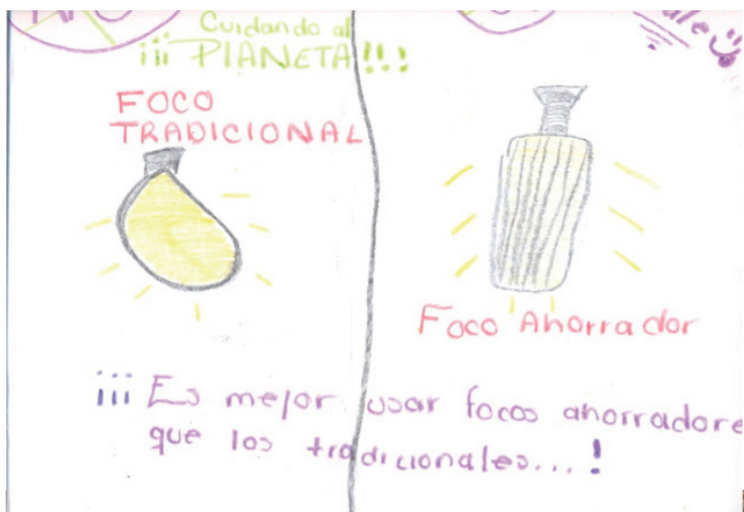 Cuidando al
¡¡¡ PlANETA!!!
FOCO
TRADICIONAL
Foco Ahorrador
¡¡¡ Es mejor usar focos ahorradore
que los tradicionales...!